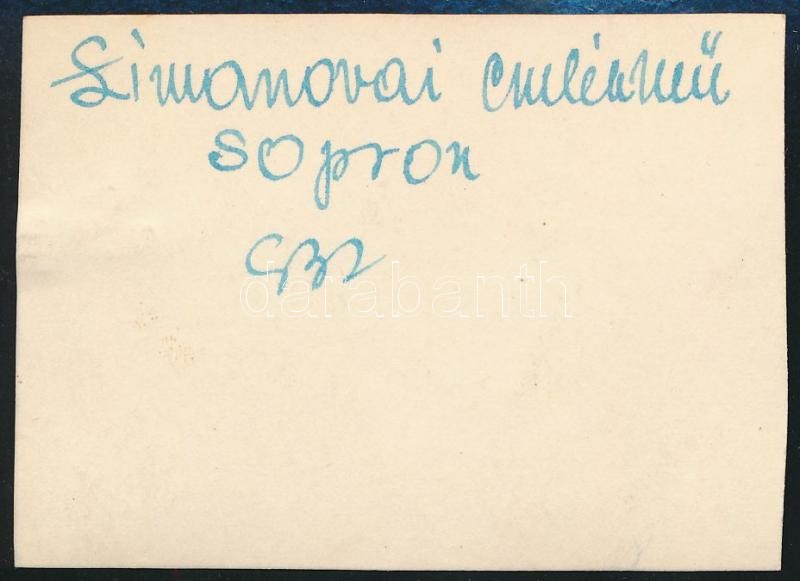 Limanovai emlékmű
Sopron
932
darabanth